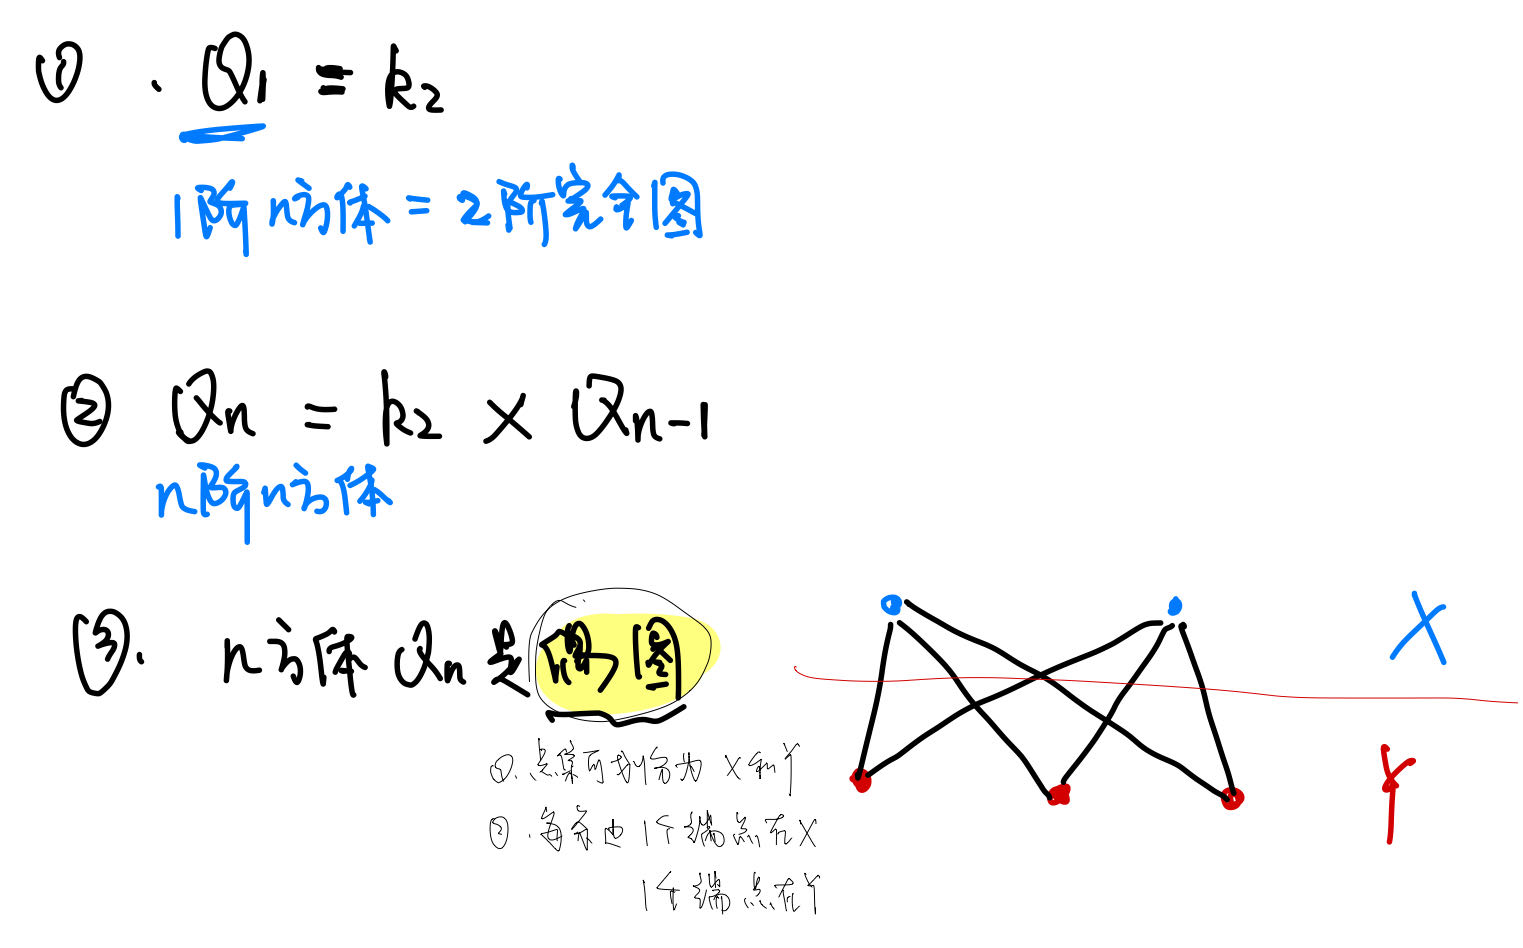 ① . Q₁ = k₂
1阶n方体 = 2阶完全图
② Qn = k₂ × Qn-1
n阶n方体
③. n方体 Qn 是偶图
①. 点集可划分为 X和Y
②. 每条边 1个端点在X
1个端点在Y
X
Y